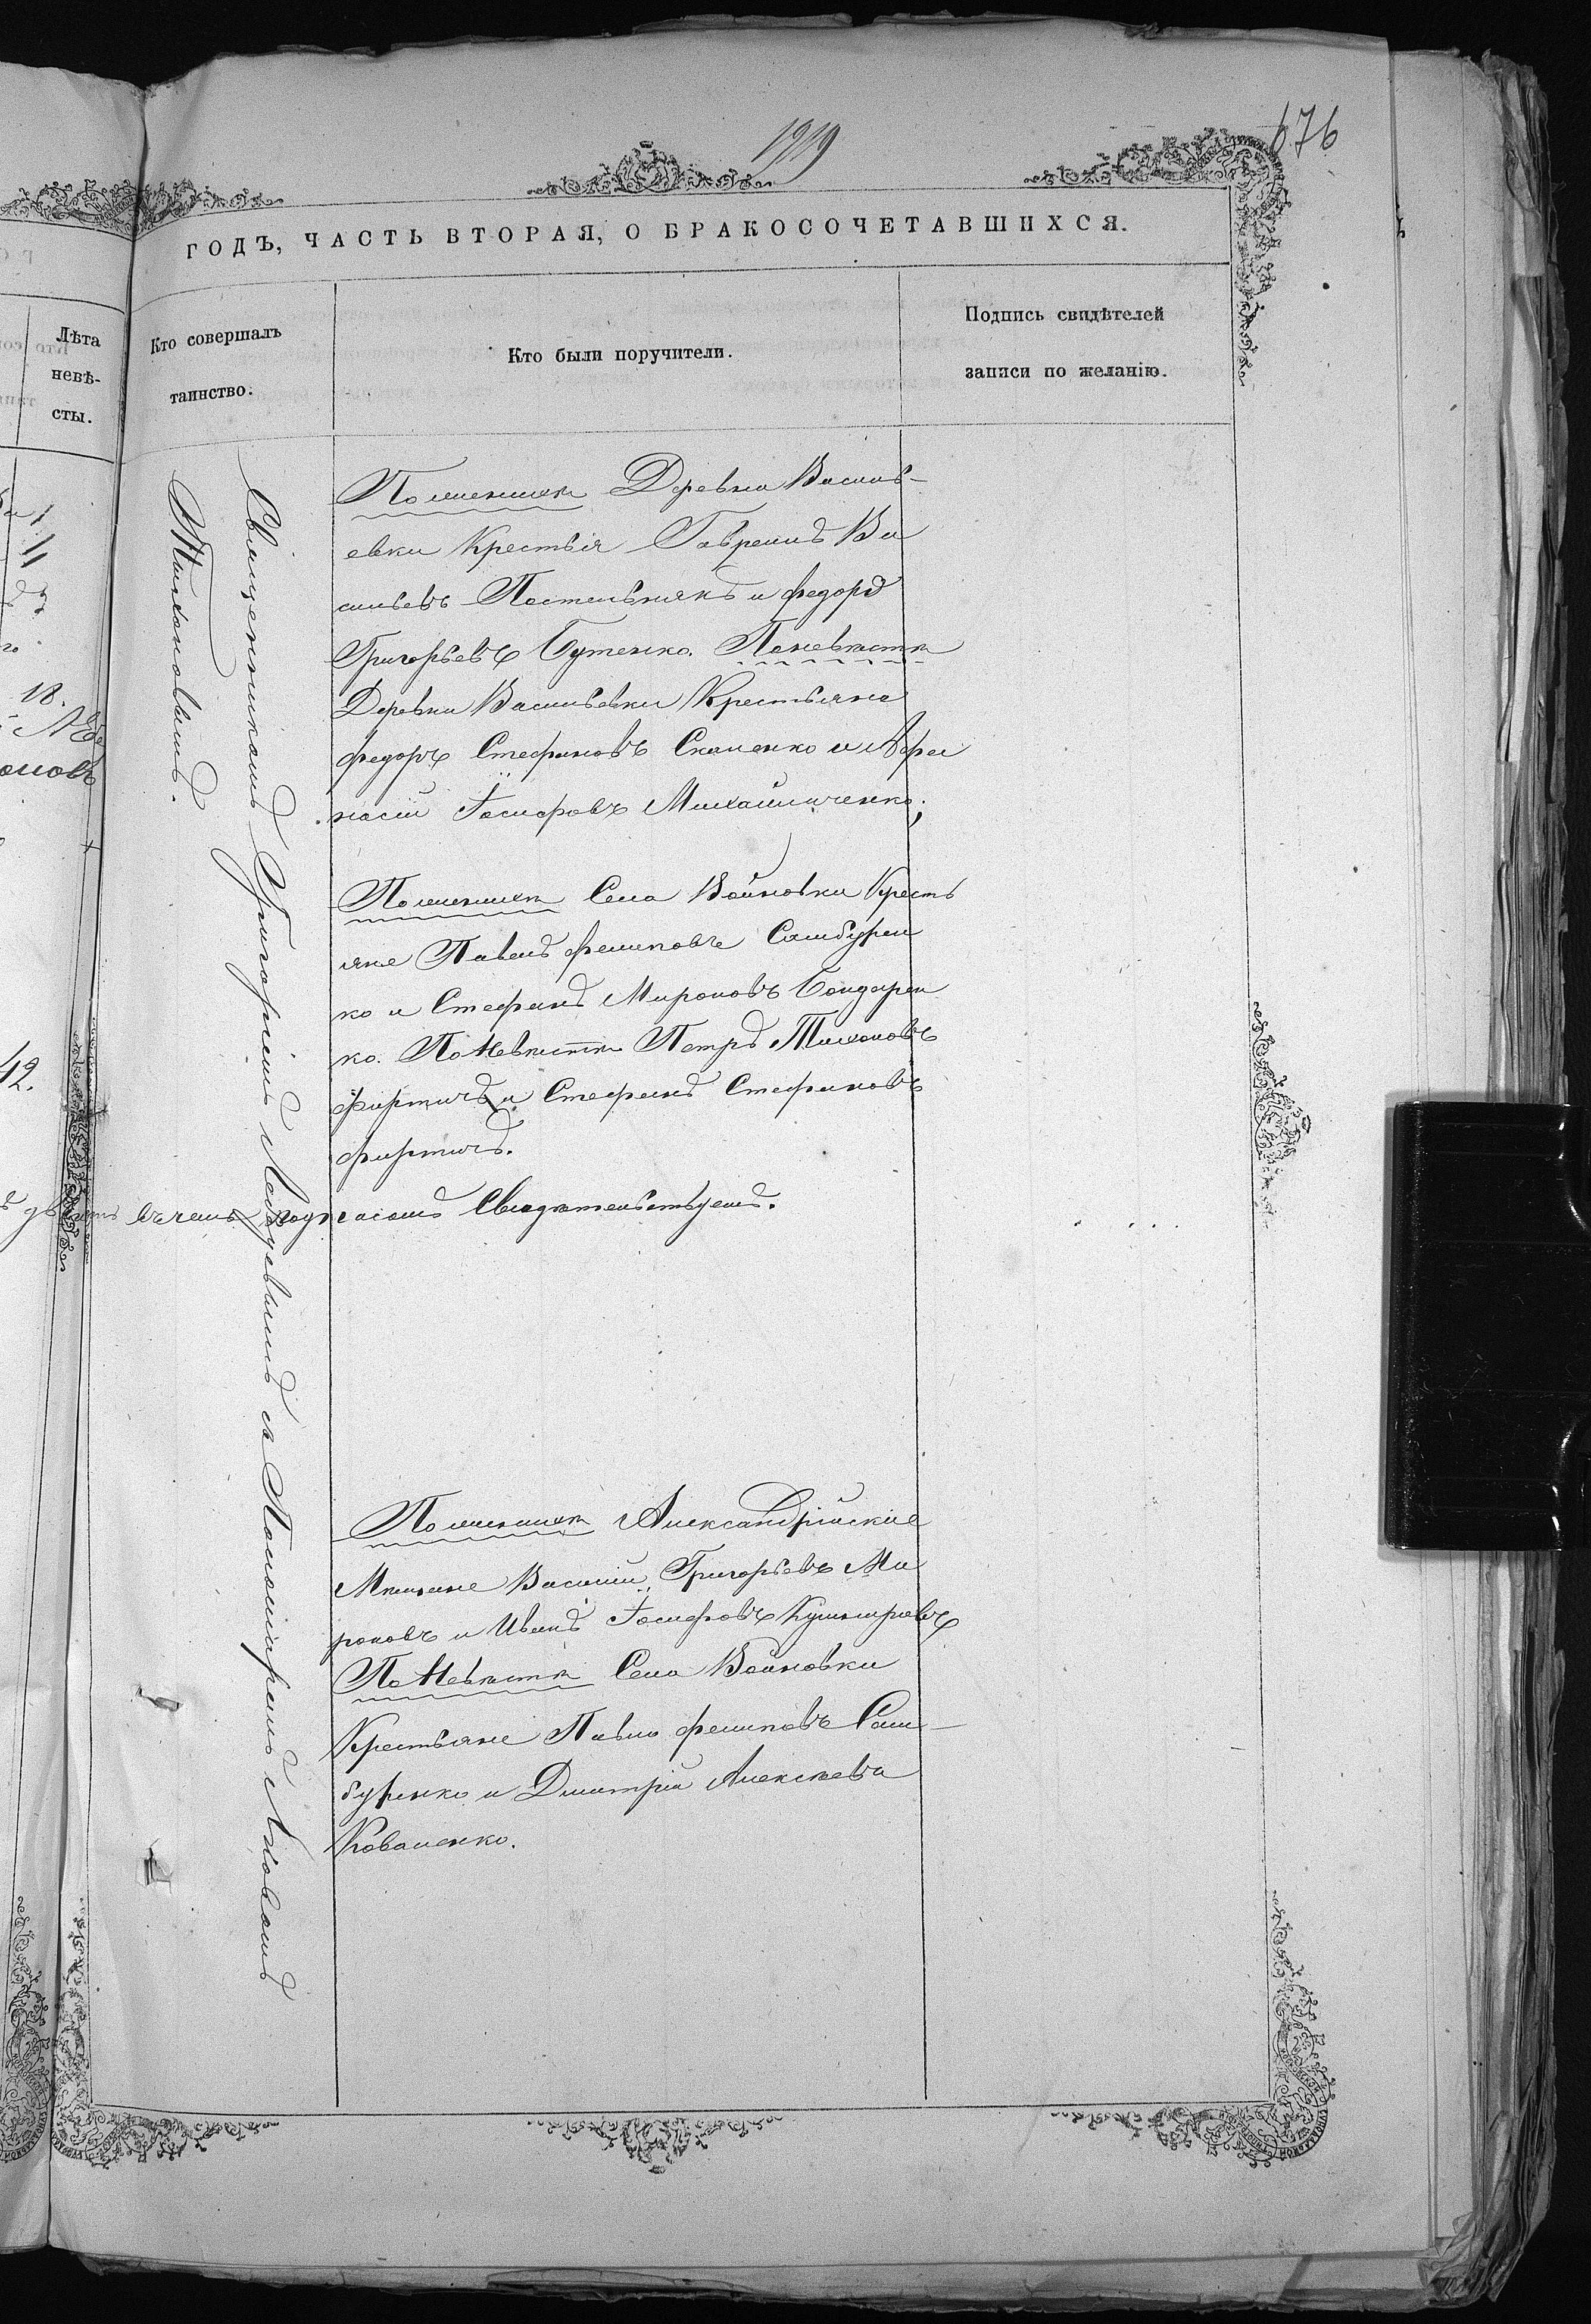 1919
676
ГОДЪ, ЧАСТЬ ВТОРАЯ, О БРАКОСОЧЕТАВШИХСЯ.
Лѣта
невѣ-
сты.
Кто совершалъ
таинство.
Кто были поручители.
Подпись свидѣтелей
записи по желанію.
18.
42.
Священникомъ Григоріемъ с Пономаремъ
Тихоновымъ.
По женихѣ Деревни Василь-
евки Крестья Гавриилъ Ва
сильевъ Постельнякъ и Федоръ
Григорьевъ Бутенко. По невѣстѣ
Деревни Васильевки Крестьяне
Федоръ Стефановъ Скаленко и Афа
насій Іосифовъ Михайличенко;
По женихѣ Села Войновки Кресть
яне Павелъ Филиповъ Самбурен
ко и Стефанъ Мироновъ Бондарен
ко. По Невѣстѣ Петръ Тихоновъ
Фиртичъ и Стефанъ Стефановъ
Фиртичъ.
въ чемъ подписомъ Свидѣтельствуемъ.
По женихѣ Александрійскіе
Мѣщане Василій Григорьевъ Ми
роновъ и Иванъ Іосифовъ Кушнировъ
По Невѣстѣ Села Войновки
Крестьяне Павелъ Филиповъ Сам-
буренко и Димитрій Алексѣевъ
Коваленко.